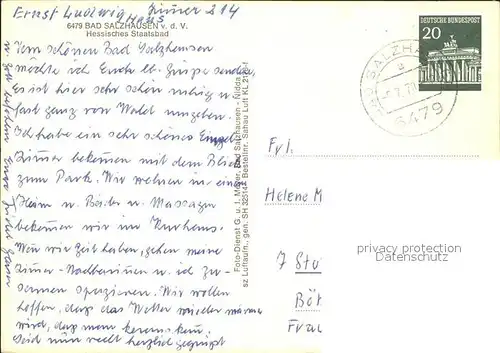 Ernst Ludwig Haus Zimmer 214
6479 BAD SALZHAUSEN v. d. V.
Hessisches Staatsbad
Vom schönen Bad Salzhausen
möchte ich Euch lb. Grüße senden,
Es ist hier sehr schön ruhig u
fast ganz von Wald umgeben.
Ich habe ein sehr schönes Einzel-
Zimmer bekommen mit dem Blick
zum Park. Wir wohnen in einem
Heim u. Bäder u. Massagen
bekommen wir im Kurhaus.
Wenn wir Zeit haben, gehen meine
Zimmer-Nachbarinnen u. ich zu-
sammen spazieren. Wir wollen
hoffen, dass das Wetter wieder wärmer
wird, dass man heraus kann.
Seid nun recht herzlich gegrüßt
Foto-Dienst G. u. I. Bad Salzhausen - Nidda
sz Luftaufn., gen. SH Bestellnr. Sahau Luft KL
DEUTSCHE BUNDESPOST
20
BAD SALZHA
6479
Frl.
Helene M
7 Stu
Böt
Frau
privacy protection
Datenschutz